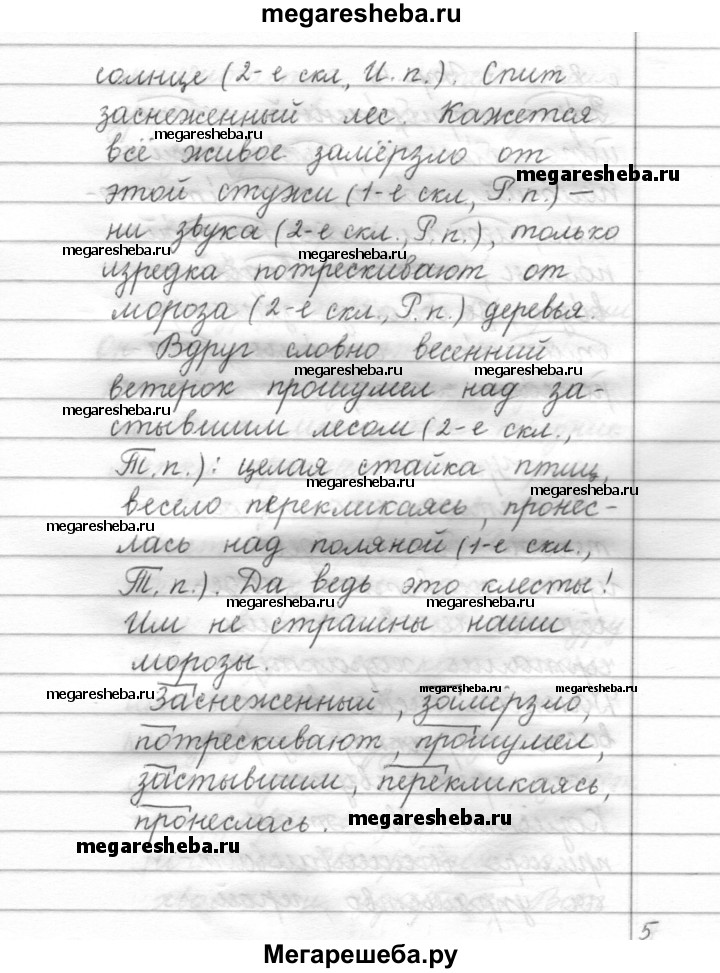 megaresheba.ru
солнце (2-е скл, И. п.). Спит
заснеженный лес. Кажется
megaresheba.ru
всё живое замёрзло от
megaresheba.ru
этой стужи (1-е скл, Р. п.) —
ни звука (2-е скл., Р. п.), только
megaresheba.ru megaresheba.ru
изредка потрескивают от
мороза (2-е скл., Р. п.) деревья.
Вдруг словно весенний
megaresheba.ru megaresheba.ru
ветерок прошумел над за-
megaresheba.ru
стывшим лесом (2-е скл.,
Т. п.): целая стайка птиц,
megaresheba.ru megaresheba.ru
весело перекликаясь, пронес-
megaresheba.ru
лась над поляной (1-е скл.,
Т. п.). Да ведь это клесты!
megaresheba.ru megaresheba.ru
Им не страшны наши
морозы.
megaresheba.ru megaresheba.ru megaresheba.ru
Заснеженный, замёрзло,
потрескивают, прошумел,
застывшим, перекликаясь,
пронеслась. megaresheba.ru
megaresheba.ru
5
Мегарешеба.ру